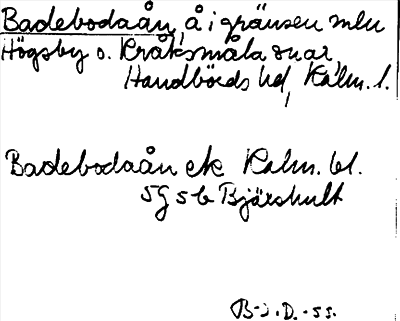 Badebodaån, å i gränsen mln
Högsby o. Kråksmåla snar,
Handbörds hd, Kalm. l.
Badebodaån ek Kalm. bl.
5G 5b Bjärshult
B-i. D. -55.